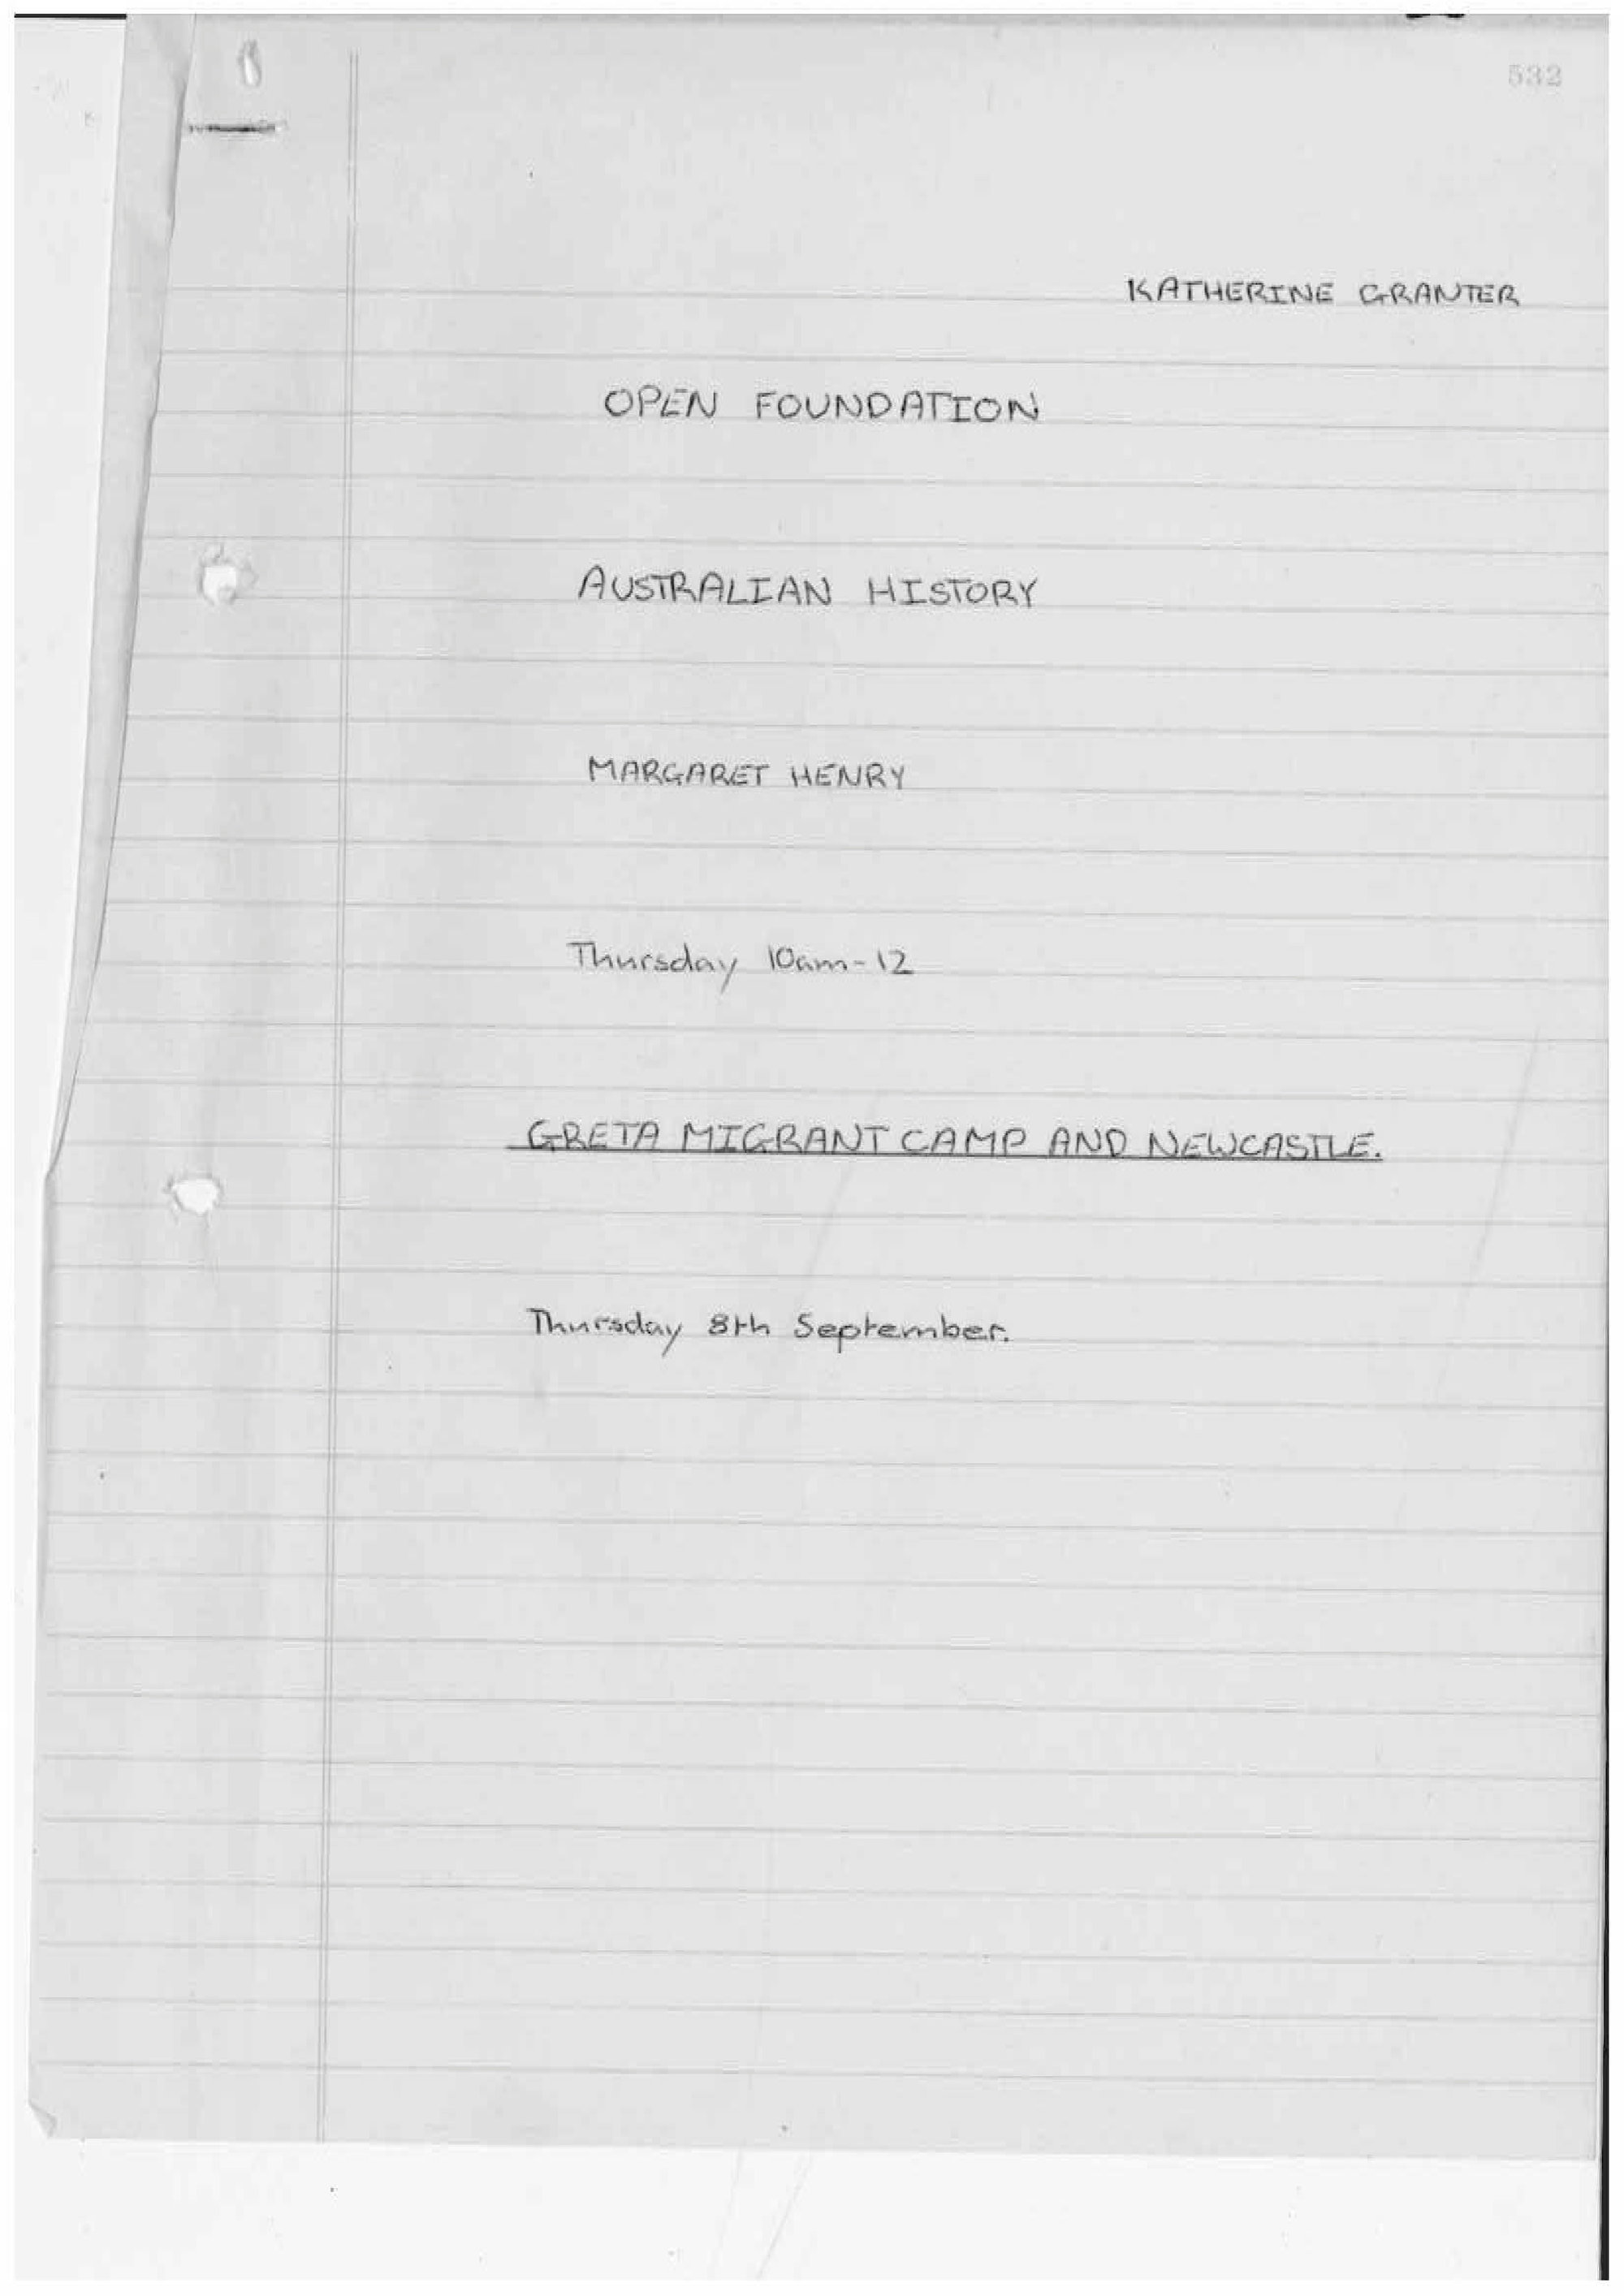 532
KATHERINE GRANTER
OPEN FOUNDATION
AUSTRALIAN HISTORY
MARGARET HENRY
Thursday 10am-12
GRETA MIGRANT CAMP AND NEWCASTLE.
Thursday 8th September.